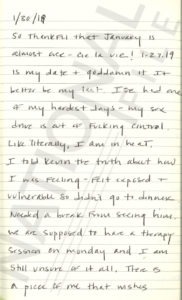 1/30/19
So thankful that January is
almost ove - cie la vie! 1-27.19
is my date + goddamn it It
better be my last. I'se had one
of my hardest days - my sex
drive is out of fucking control.
Like literally, I am in heat.
I told Kevin the truth about how
I was feeling - felt exposed +
vulnerable so didn't go to dinner.
Needed a break from seeing him.
We are supposed to have a therapy
session on Monday and I am
still unsure of it all. There is
a piece of me that wishes